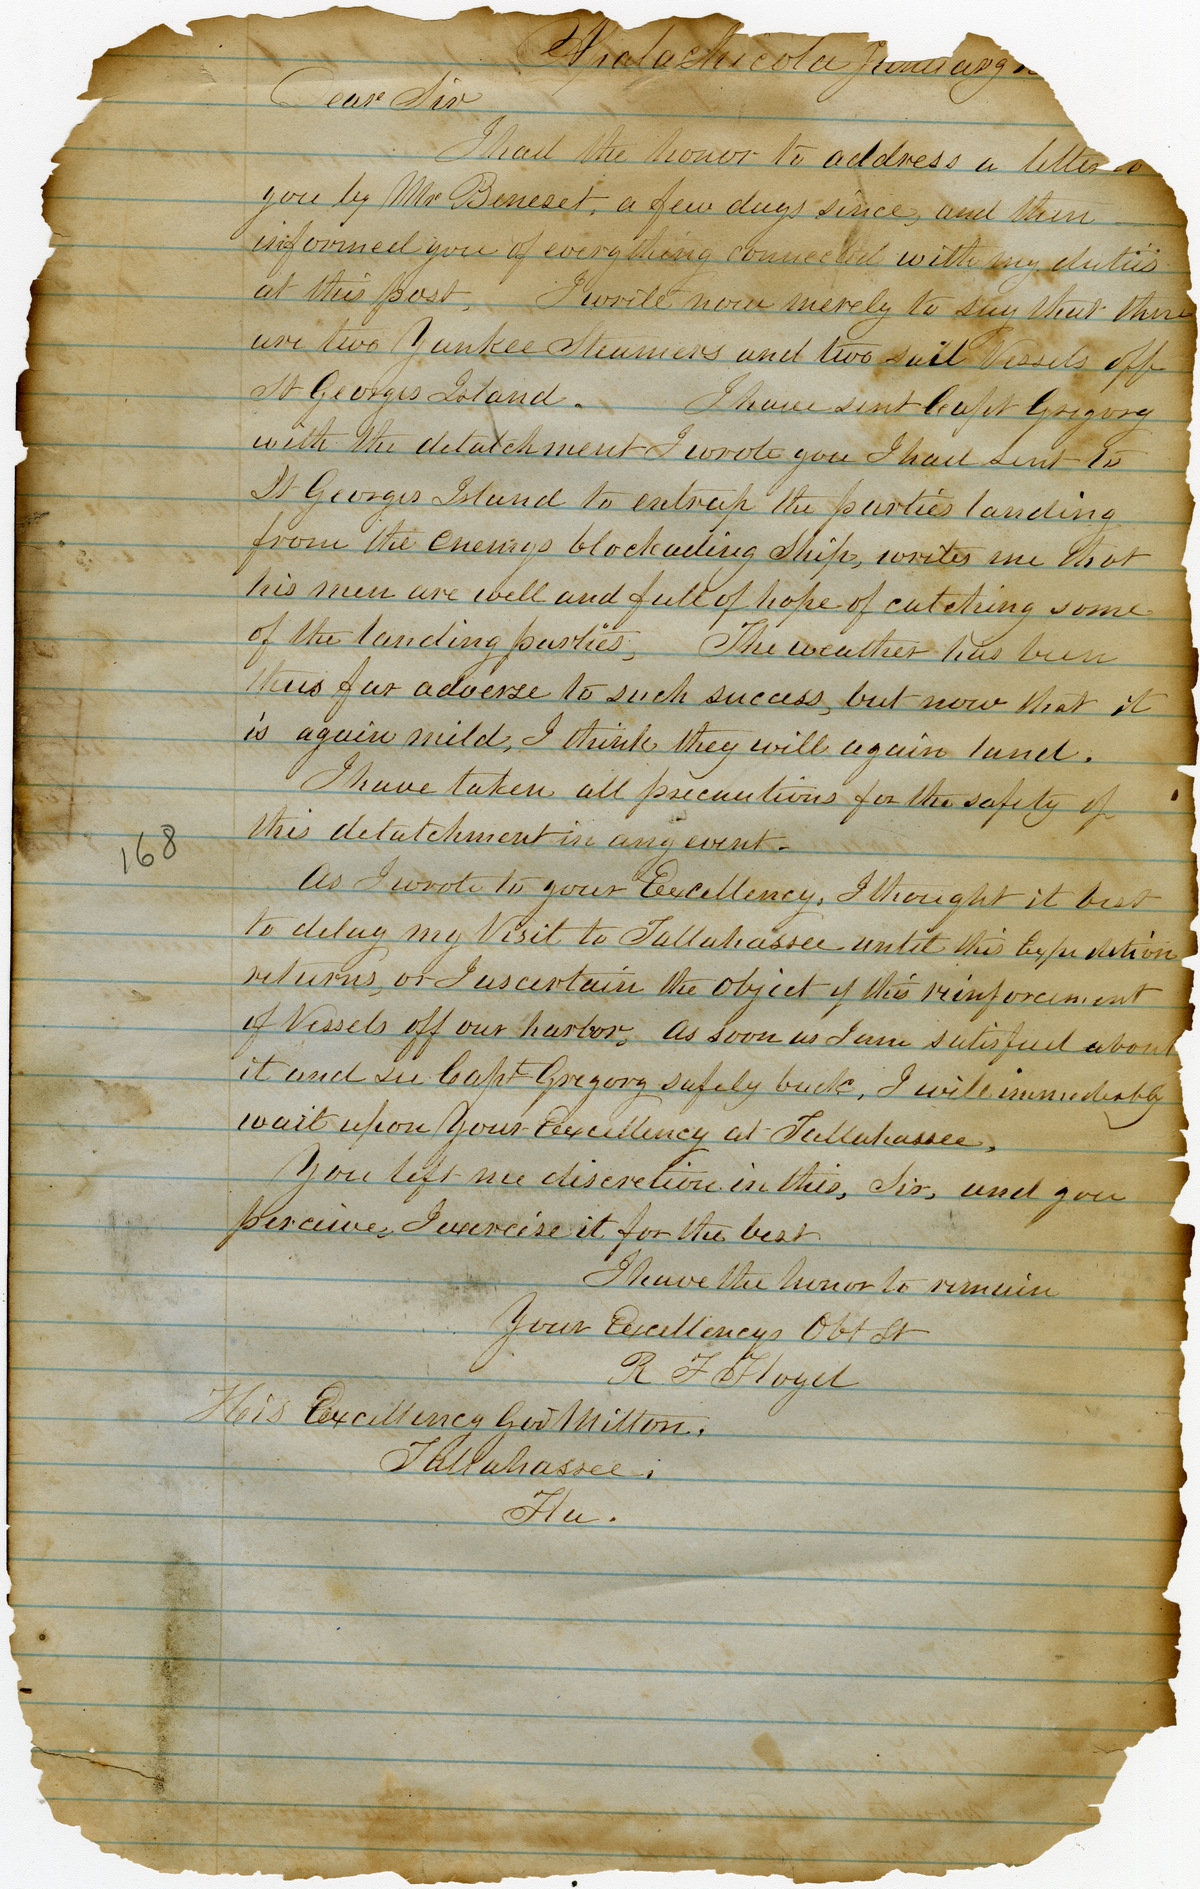 Apalachicola January
Dear Sir
I had the honor to address a letter to
you by Mr Beneset, a few days since, and then
informed you of everything connected with my duties
at this post. I write now merely to say that there
are two Yankee Steamers and two sail Vessels off
St Georges Island. I have sent Capt Gregory
with the detatchment I wrote you I had sent to
St Georges Island to entrap the parties landing
from the enemys blockading Ship, writes me that
his men are well and full of hope of catching some
of the landing parties, The weather has been
thus far adverse to such success, but now that it
is again mild, I think they will again land.
I have taken all precautions for the safety of
this detatchment in any event.
168
As I wrote to your Excellency, I thought it best
to delay my Visit to Tallahassee until this Expedition
returns, or I ascertain the object of this reinforcement
of Vessels off our harbor, As soon as I am satisfied about
it and see Capt Gregory safely back, I will immediately
wait upon Your Excellency at Tallahassee,
You left me discretion in this, Sir, and you
perceive, I exercise it for the best
I have the honor to remain
Your Excellencys Obt St
R F Floyd
His Excellency Gov Milton.
Tallahassee.
Fla.